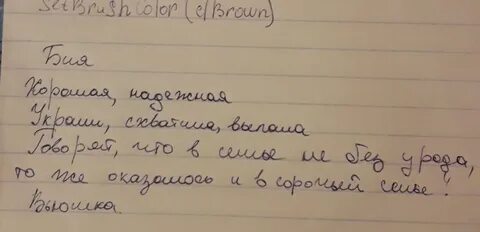 SetBrushColor(clBrown)
Бия
Хорошая, надежная
Украши, схватила, выпала
Говорят, что в семье не без урода,
то же оказалось и в сорочьей семье!
Вьюшка.